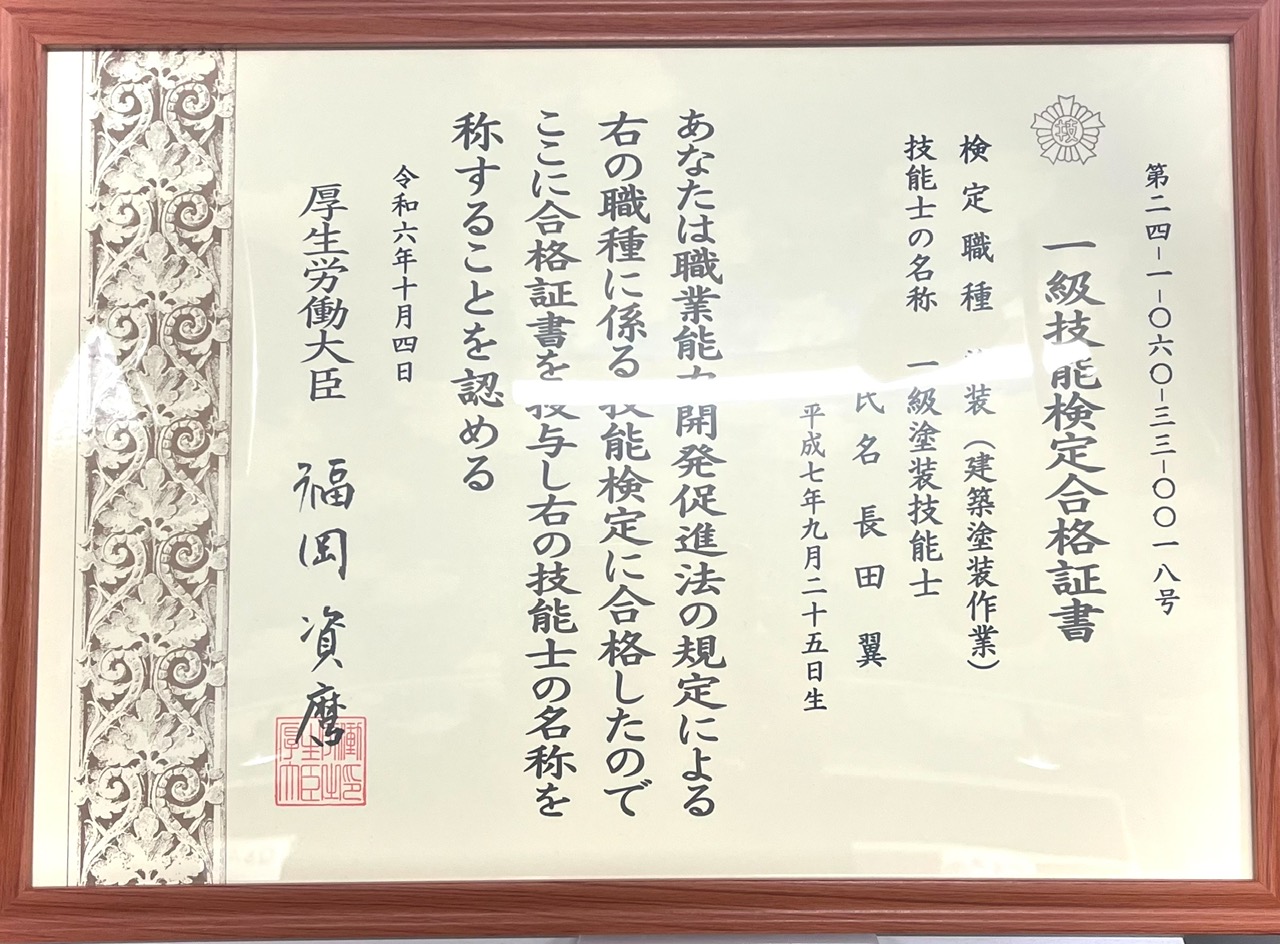 第二四-一-〇六〇-三三-〇〇一八号
技
一級技能検定合格証書
検定職種 塗装(建築塗装作業)
技能士の名称 一級塗装技能士
氏名 長田 翼
平成七年九月二十五日生
あなたは職業能力開発促進法の規定による
右の職種に係る技能検定に合格したので
ここに合格証書を授与し右の技能士の名称を
称することを認める
令和六年十月四日
厚生労働大臣 福岡 資麿
厚生労働大臣之印